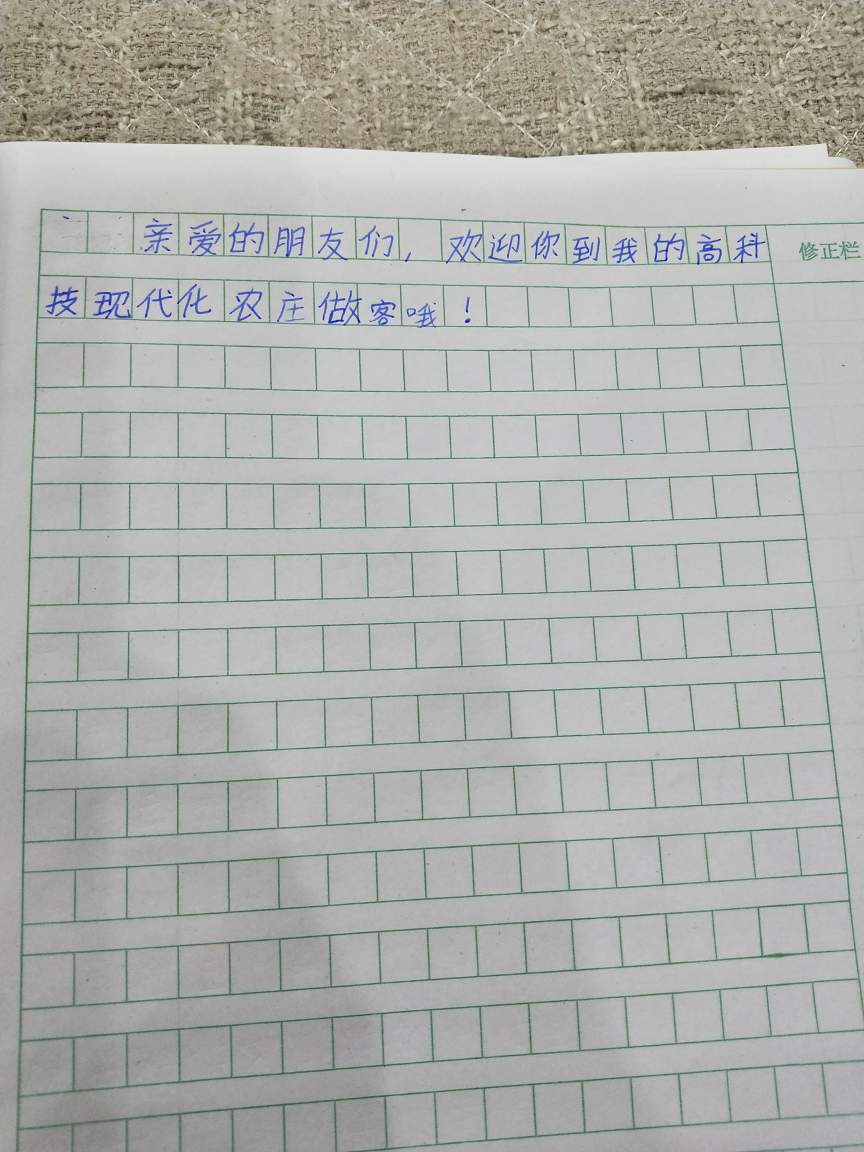 亲爱的朋友们，欢迎你到我的高科
技现代化农庄做客哦！
修正栏